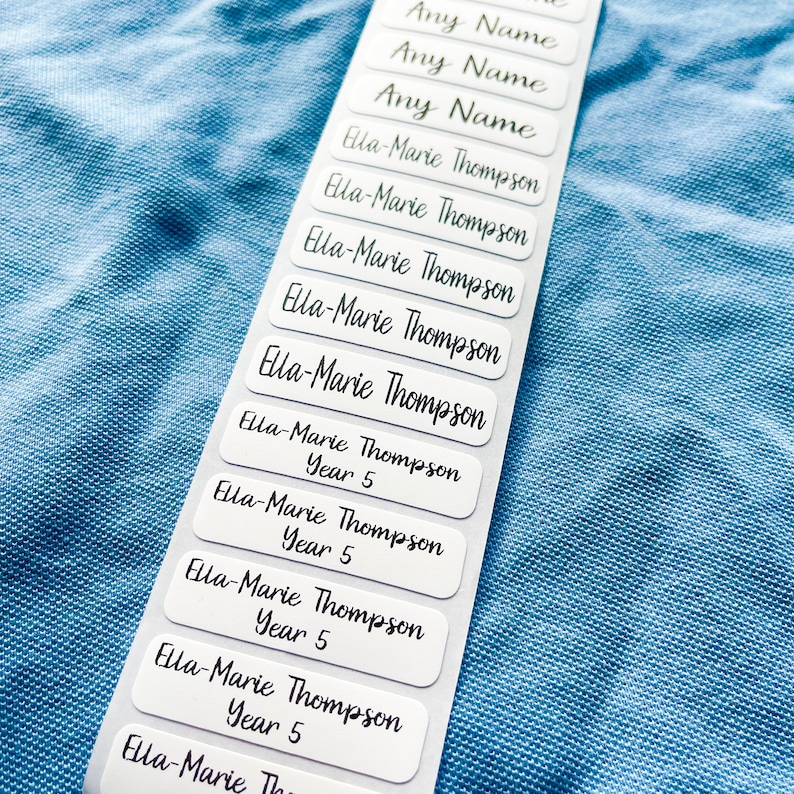 Name
Any Name
Any Name
Any Name
Ella-Marie Thompson
Ella-Marie Thompson
Ella-Marie Thompson
Ella-Marie Thompson
Ella-Marie Thompson
Ella-Marie Thompson
Year 5
Ella-Marie Thompson
Year 5
Ella-Marie Thompson
Year 5
Ella-Marie Thompson
Year 5
Ella-Marie